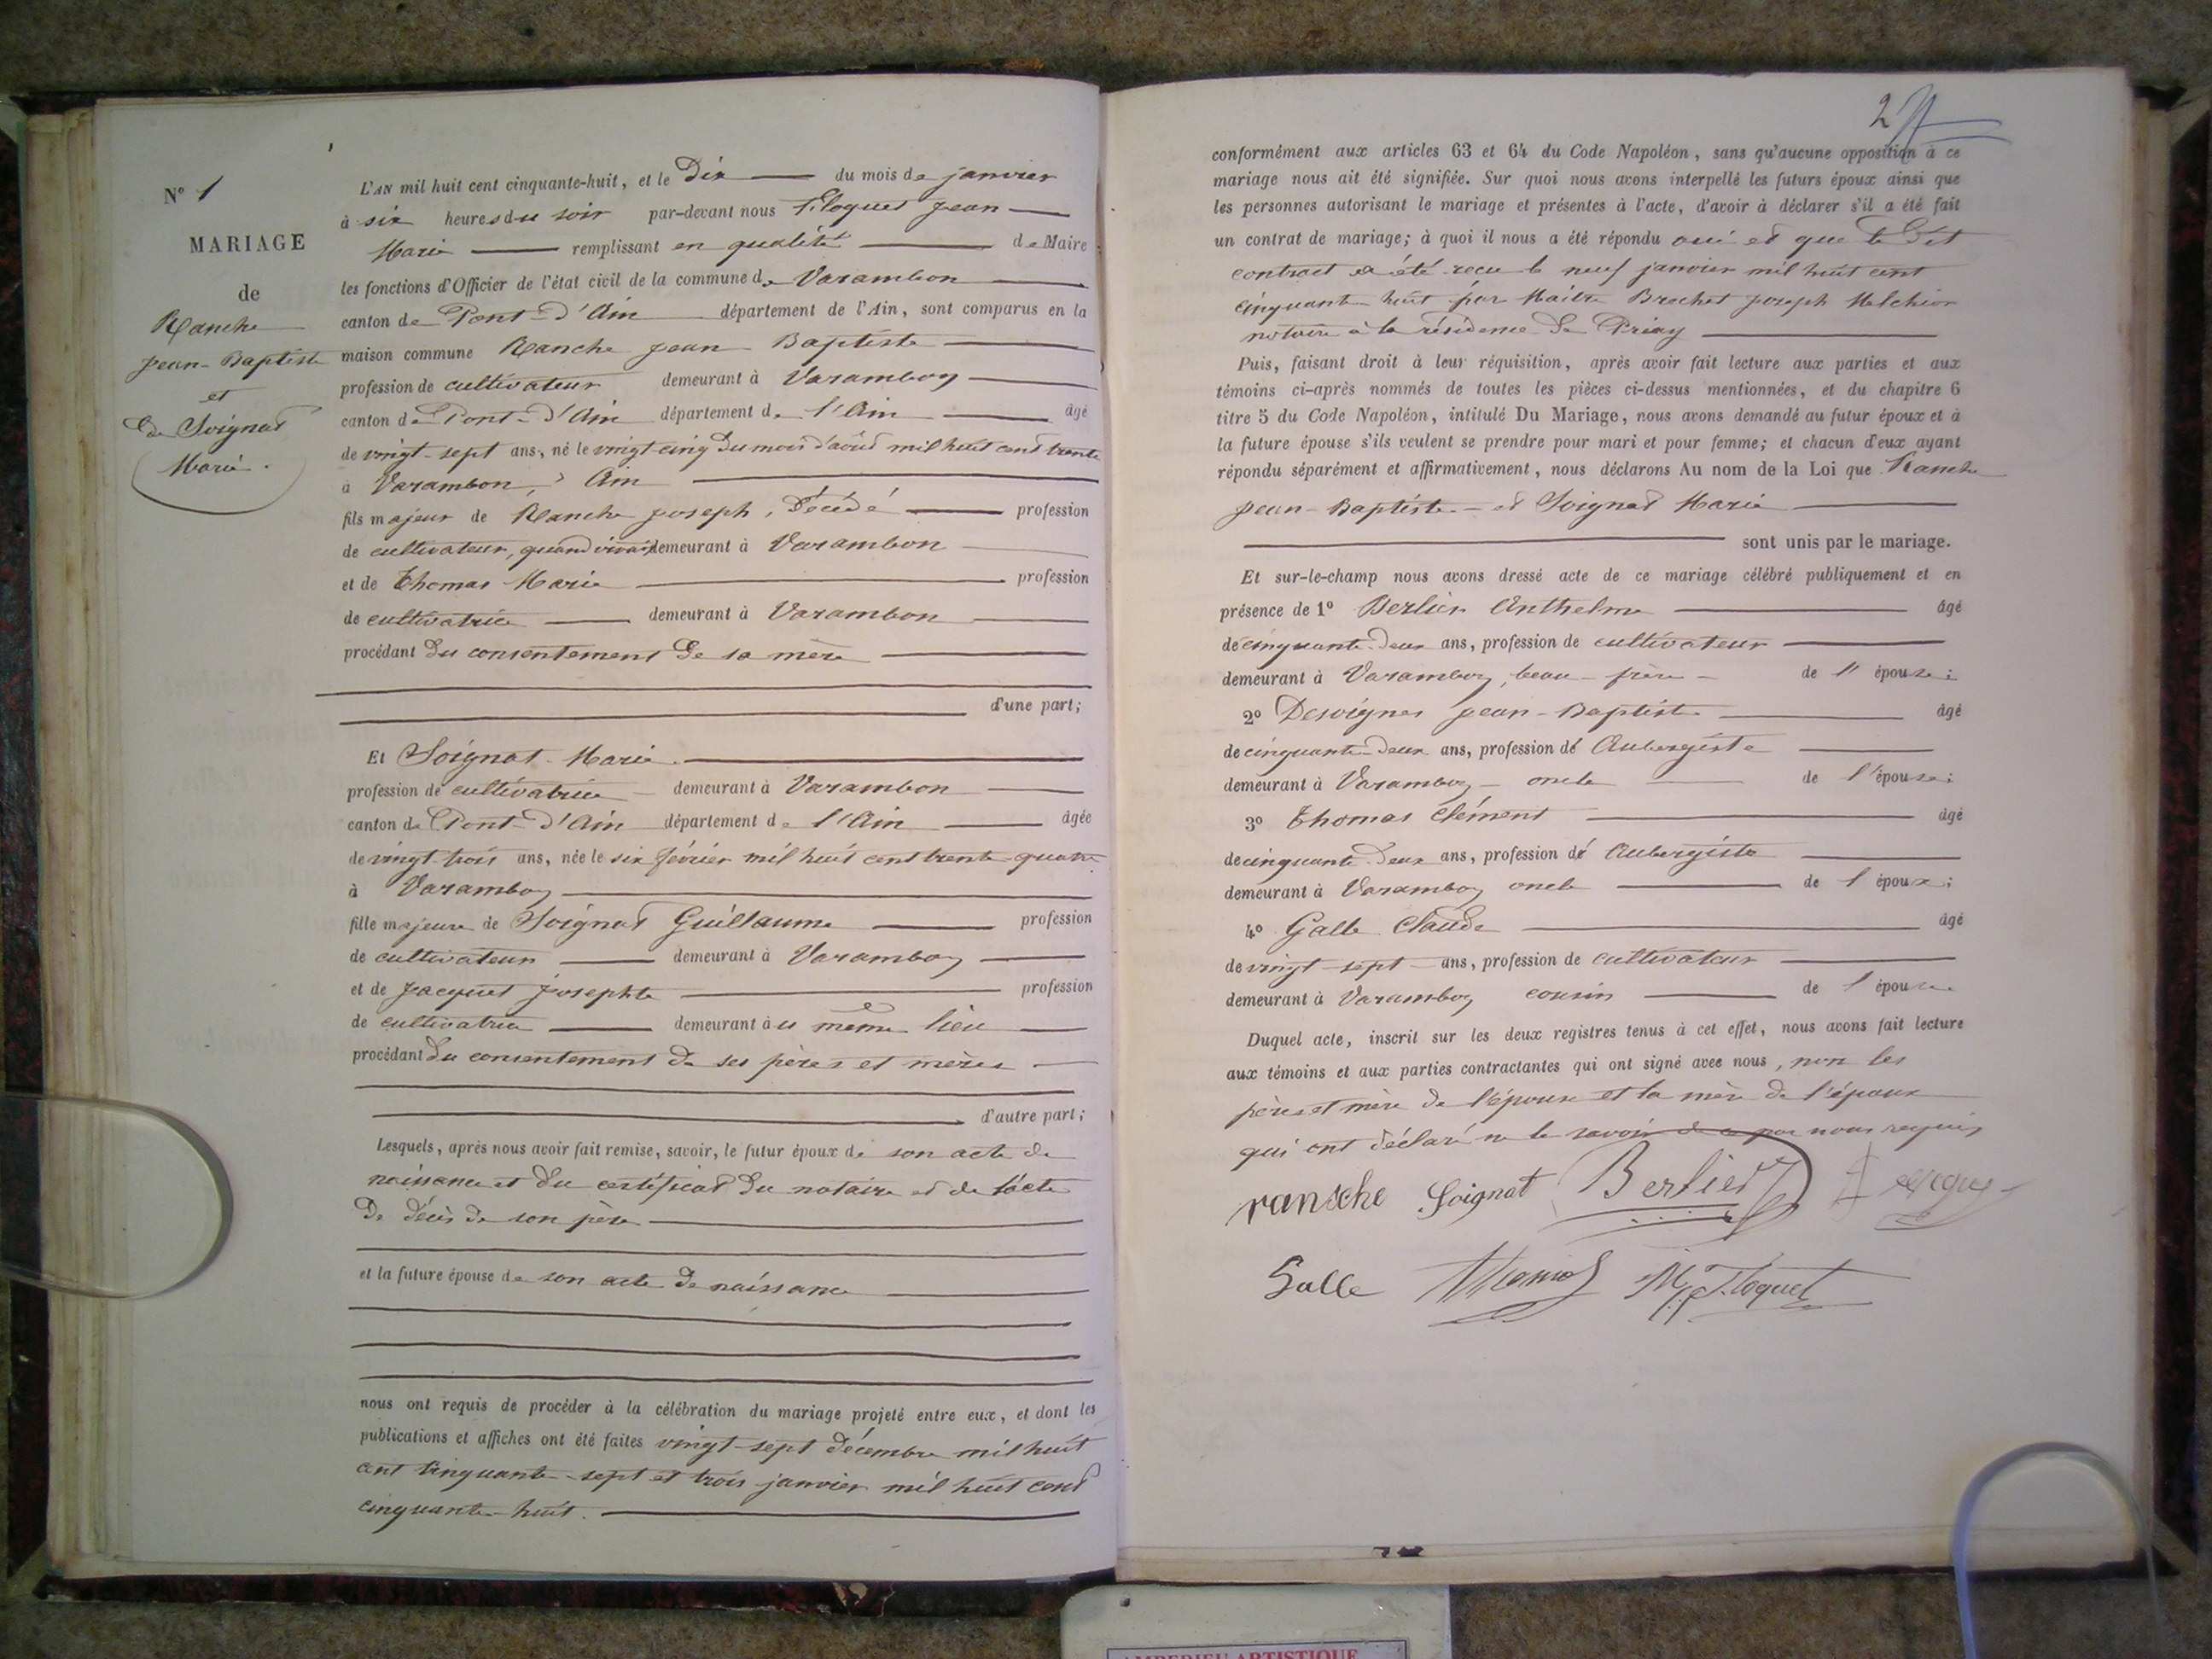 N° 1
MARIAGE
de
Ranche
Jean-Baptiste
et
de Soignat
Marie.
L'AN mil huit cent cinquante-huit, et le Dix du mois de janvier
à six heures du soir par-devant nous Floquet Jean
Marie remplissant en qualité de Maire
les fonctions d'Officier de l'état civil de la commune de Varambon
canton de Pont-d'Ain département de l'Ain, sont comparus en la
maison commune Ranche Jean Baptiste
profession de cultivateur demeurant à Varambon
canton de Pont-d'Ain département de l'Ain âgé
de vingt-sept ans, né le vingt-cinq du mois d'août mil huit cent trente
à Varambon, Ain
fils majeur de Ranche Joseph, Décédé profession
de cultivateur, quand vivait demeurant à Varambon
et de Thomas Marie profession
de cultivatrice demeurant à Varambon
procédant du consentement de sa mère
d'une part;
Et Soignat Marie
profession de cultivatrice demeurant à Varambon
canton de Pont-d'Ain département de l'Ain âgée
de vingt-trois ans, née le six février mil huit cent trente-quatre
à Varambon
fille majeure de Soignat Guillaume profession
de cultivateur demeurant à Varambon
et de Jacquet Josephte profession
de cultivatrice demeurant au même lieu
procédant du consentement de ses pères et mères
d'autre part;
Lesquels, après nous avoir fait remise, savoir, le futur époux de son acte de
naissance et du certificat du notaire et de l'acte
De décès de son père
et la future épouse de son acte de naissance
nous ont requis de procéder à la célébration du mariage projeté entre eux, et dont les
publications et affiches ont été faites vingt-sept décembre mil huit
cent cinquante-sept et trois janvier mil huit cent
cinquante-huit.
2
conformément aux articles 63 et 64 du Code Napoléon, sans qu'aucune opposition à ce
mariage nous ait été signifiée. Sur quoi nous avons interpellé les futurs époux ainsi que
les personnes autorisant le mariage et présentes à l'acte, d'avoir à déclarer s'il a été fait
un contrat de mariage; à quoi il nous a été répondu oui et que le dit
contract a été reçu le neuf janvier mil huit cent
cinquante huit par Maître Brochet Joseph Melchior
notaire à la résidence de Priay
Puis, faisant droit à leur réquisition, après avoir fait lecture aux parties et aux
témoins ci-après nommés de toutes les pièces ci-dessus mentionnées, et du chapitre 6
titre 5 du Code Napoléon, intitulé Du Mariage, nous avons demandé au futur époux et à
la future épouse s'ils veulent se prendre pour mari et pour femme; et chacun d'eux ayant
répondu séparément et affirmativement, nous déclarons Au nom de la Loi que Ranche
Jean-Baptiste et Soignat Marie
sont unis par le mariage.
Et sur-le-champ nous avons dressé acte de ce mariage célébré publiquement et en
présence de 1° Berlier Anthelme âgé
de cinquante-deux ans, profession de cultivateur
demeurant à Varambon, beau-frère de l' épouse;
2° Desvignes Jean-Baptiste âgé
de cinquante-deux ans, profession de Aubergiste
demeurant à Varambon oncle de l'épouse;
3° Thomas Clément âgé
de cinquante-deux ans, profession de Aubergiste
demeurant à Varambon oncle de l époux;
4° Galle Claude âgé
de vingt-sept ans, profession de cultivateur
demeurant à Varambon cousin de l épouse
Duquel acte, inscrit sur les deux registres tenus à cet effet, nous avons fait lecture
aux témoins et aux parties contractantes qui ont signé avec nous, non les
pères et mère de l'épouse et la mère de l'époux
qui ont déclaré ne le savoir de ce par nous requis
ransche Soignat Berlier
Galle Thomas Floquet
AMBERIEU ARTISTIQUE